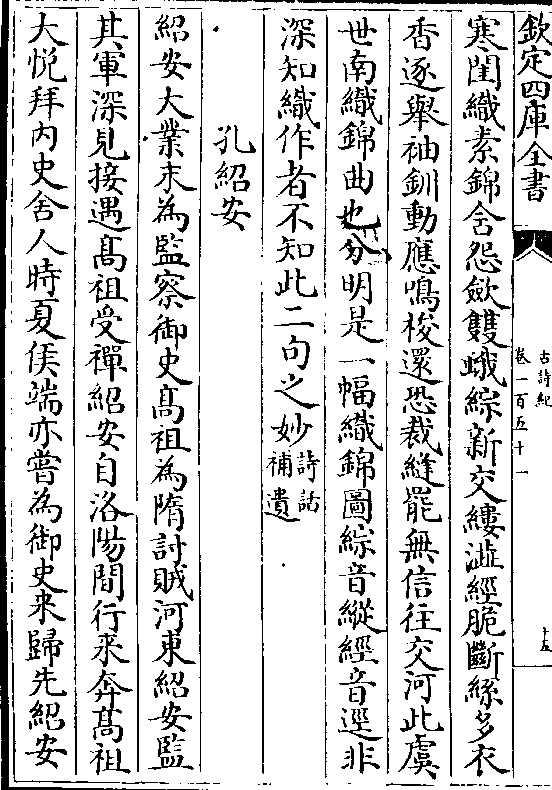 欽定四庫全書
古詩紀
卷一百五十一
十五
寒閨織素錦含怨歛雙蛾綜新交縷澁經脆斷絲多衣
香逐舉袖釧動應鳴梭還恐裁縫罷無信往交河此虞
世南織錦曲也分明是一幅織錦圖綜音縱經音逕非
深知織作者不知此二句之妙詩話補遺
孔紹安
紹安大業末為監察御史髙祖為隋討賊河東紹安監
其軍深見接遇髙祖受禪紹安自洛陽間行来奔髙祖
大悦拜内史舍人時夏侯端亦嘗為御史来歸先紹安